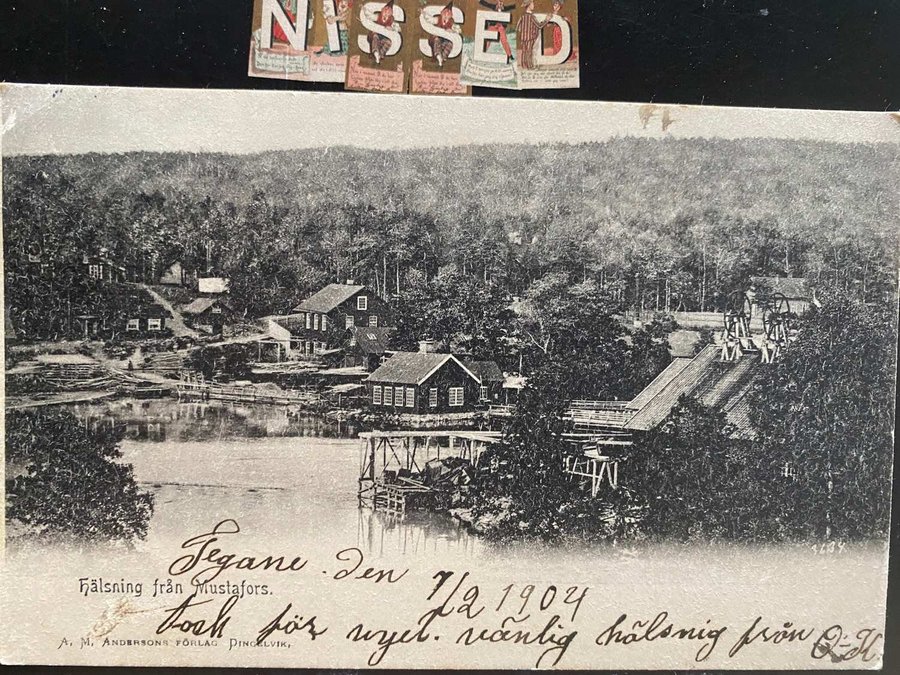 NISSED
1234
Tegane. den 7/2 1904
Hälsning från Mustafors.
Tack för vyet. vänlig hälsnig från O-H
A. M. ANDERSONS FÖRLAG DINGELVIK,